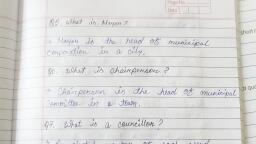 Page No.
Date
Q5. What is Mayor?
→ Mayor is the head of municipal
corporation in a city.
Q6. What is chairperson?
→ Chairperson is the head of municipal
committee in a town.
Q7. What is a councillor?